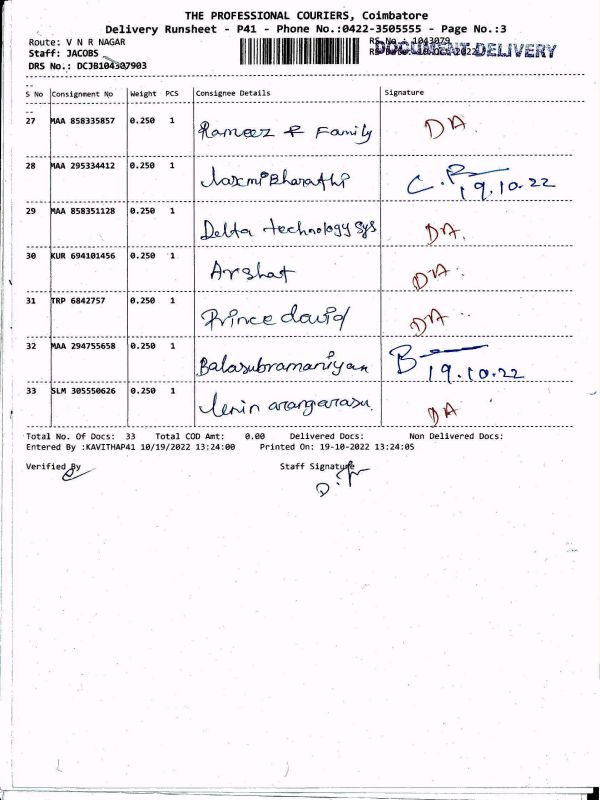 THE PROFESSIONAL COURIERS, Coimbatore
Delivery Runsheet - P41 - Phone No.:0422-3505555 - Page No.:3
Route: V N R NAGAR
RS No.: 1043079
Staff: JACOBS
DOCUMENT DELIVERY
DRS No.: DCJB104307903
S No Consignment No Weight PCS Consignee Details Signature
27 MAA 858335857 0.250 1 Rameez & Family DA.
28 MAA 295334412 0.250 1 Laxmi Bharathi 19.10.22
29 MAA 858351128 0.250 1 Delta technology sys DA.
30 KUR 694101456 0.250 1 Arshat DA.
31 TRP 6842757 0.250 1 Prince david DA.
32 MAA 294755658 0.250 1 Balasubramaniyan B 19.10.22
33 SLM 305550626 0.250 1 Lenin arangarasu. DA
Total No. Of Docs: 33 Total COD Amt: 0.00 Delivered Docs: Non Delivered Docs:
Entered By :KAVITHAP41 10/19/2022 13:24:00 Printed On: 19-10-2022 13:24:05
Verified By Staff Signature